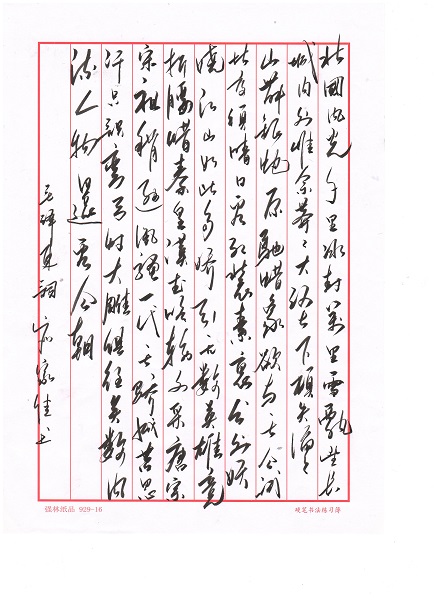 北國風光千里冰封萬里雪飄望長
城内外惟余莽莽大河上下頓失滔滔
山舞银蛇原馳蜡象欲与天公試
比高須晴日看红装素裹分外妖
嬈江山如此多嬌引无数英雄竞
折腰惜秦皇漢武略输文采唐宗
宋祖稍逊風骚一代天骄成吉思
汗只識彎弓射大雕俱往矣数風
流人物還看今朝
毛择東詞 家佳书
纸品 929-16
硬笔书法练习簿